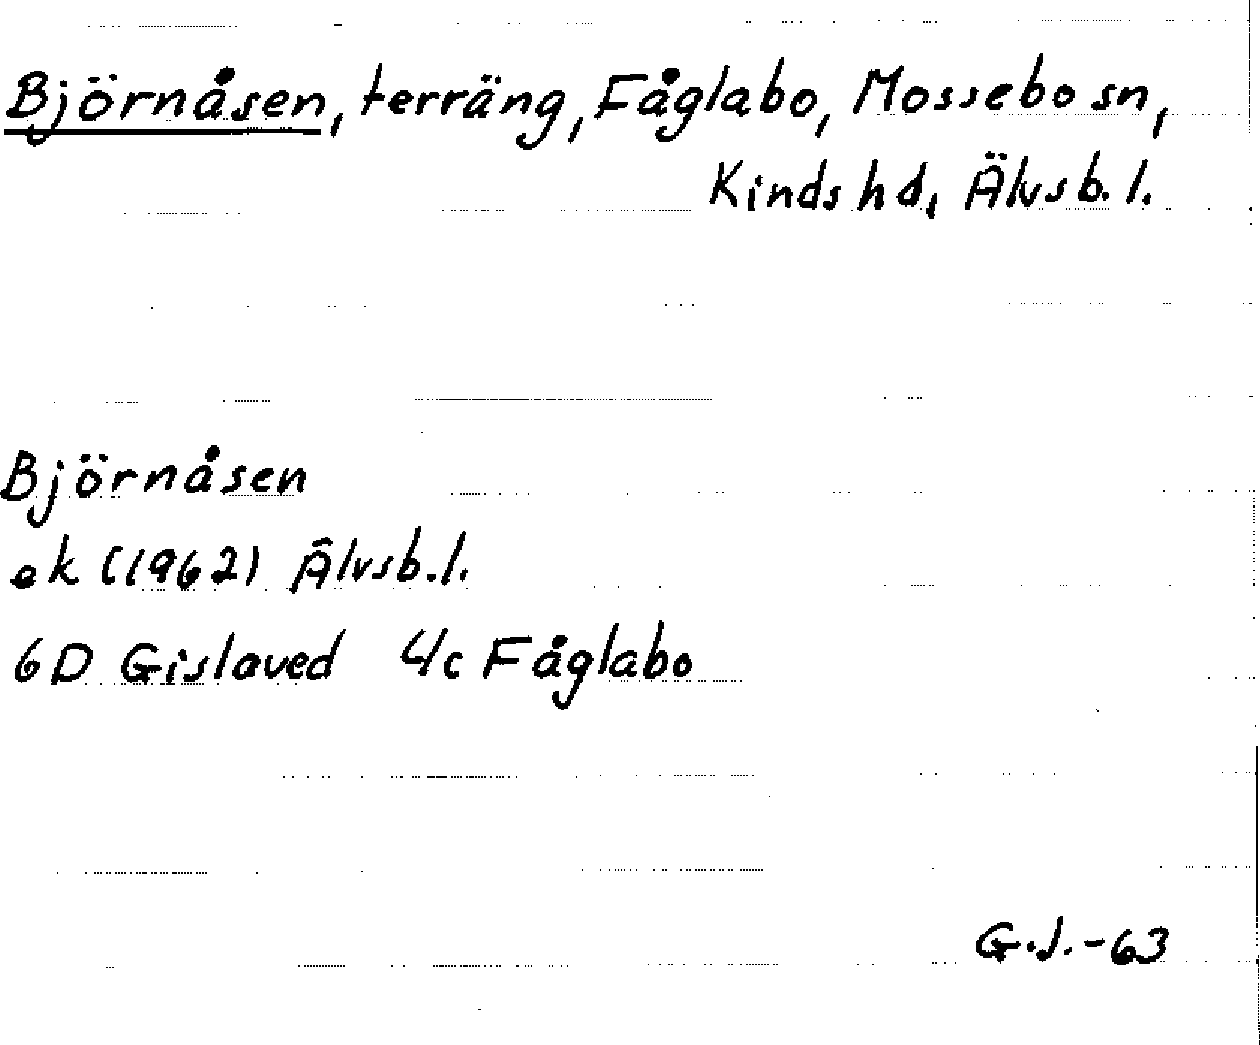 Björnåsen, terräng, Fåglabo, Mossebo sn,
Kinds hd, Älvsb. l.
Björnåsen
ek (1962) Älvsb. l.
6D Gislaved 4c Fåglabo
G.J. -63